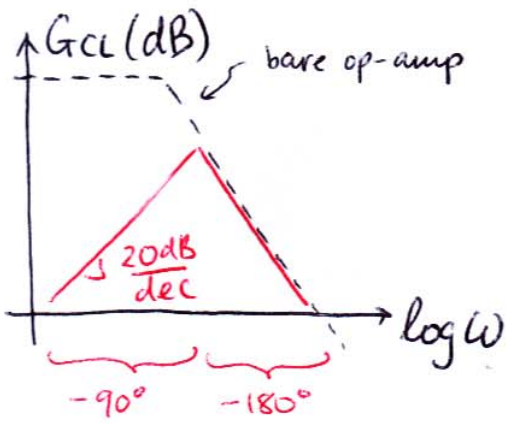 GCL (dB)
bare op-amp
20dB
dec
log ω
-90°
-180°